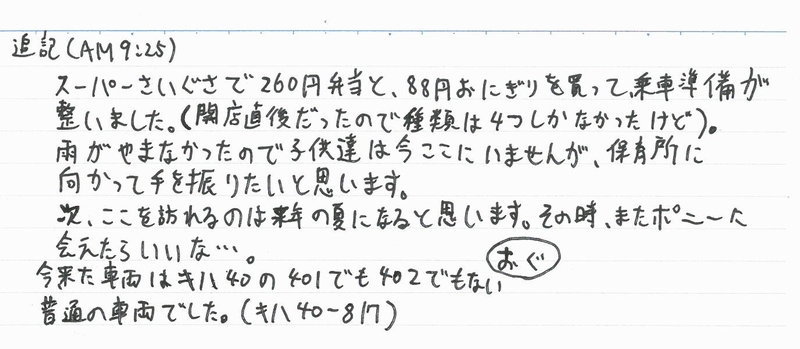 追記(AM9:25)
スーパーさいぐさで260円弁当と、88円おにぎりを買って、乗車準備が
整いました。(開店直後だったので種類は4つしかなかったけど)。
雨がやまなかったので子供達は今ここにいませんが、保育所に
向かって手を振りたいと思います。
次、ここを訪れるのは来年の夏になると思います。その時、またポニーに
会えたらいいな…。
おぐ
今来た車両はキハ40の401でも402でもない
普通の車両でした。(キハ40-817)